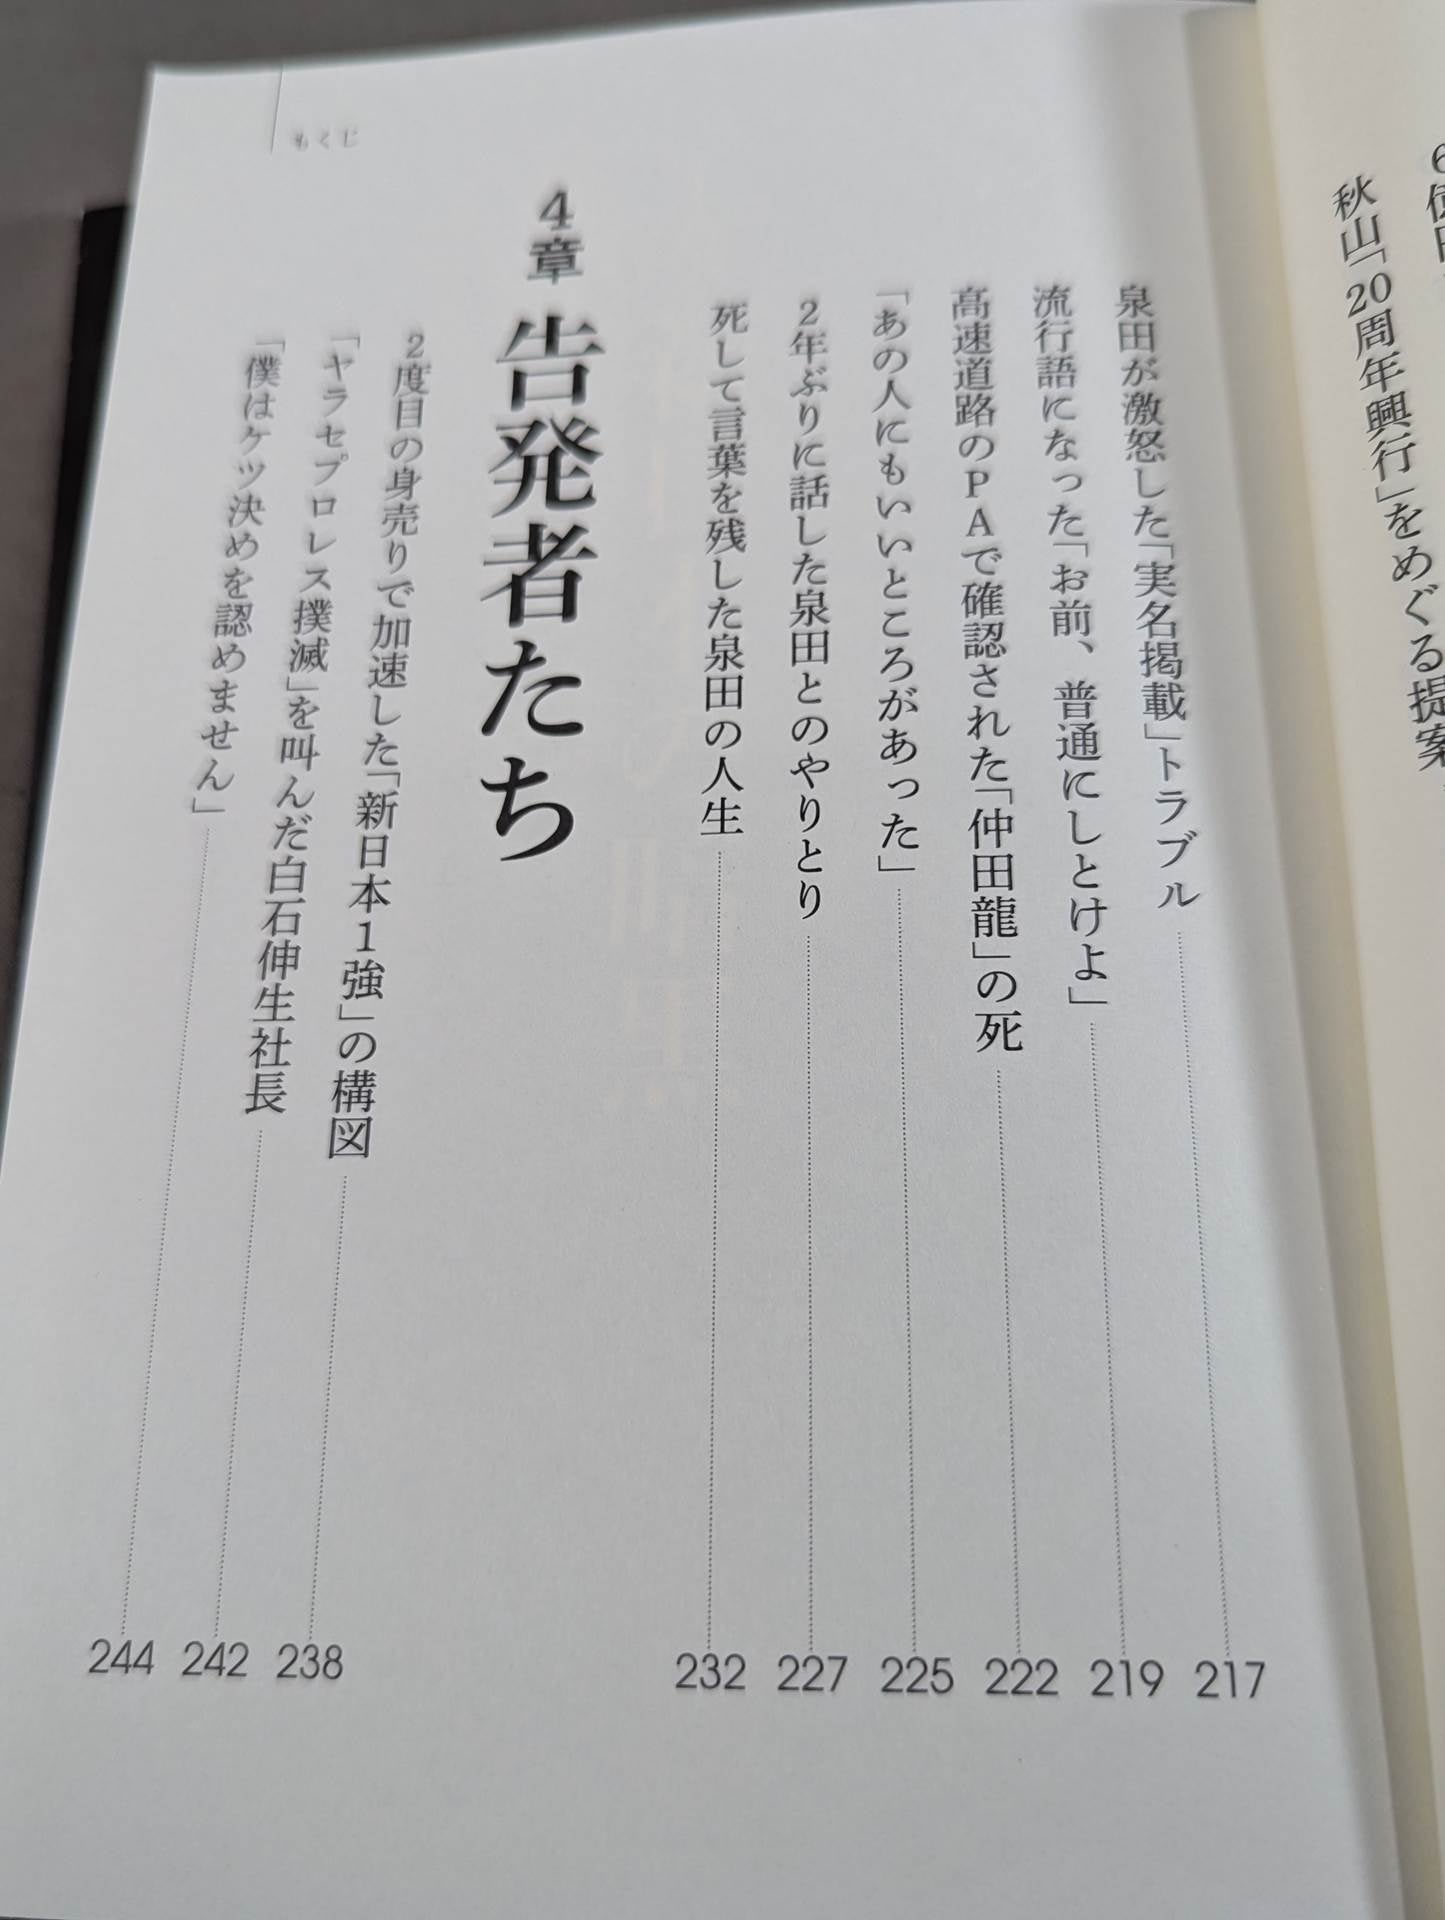 秋山「20周年興行」をめぐる提案
もくじ
泉田が激怒した「実名掲載」トラブル 217
流行語になった「お前、普通にしとけよ」 219
高速道路のPAで確認された「仲田龍」の死 222
「あの人にもいいところがあった」 225
2年ぶりに話した泉田とのやりとり 227
死して言葉を残した泉田の人生 232
4章 告発者たち
2度目の身売りで加速した「新日本1強」の構図 238
「ヤラセプロレス撲滅」を叫んだ白石伸生社長 242
「僕はケツ決めを認めません」 244